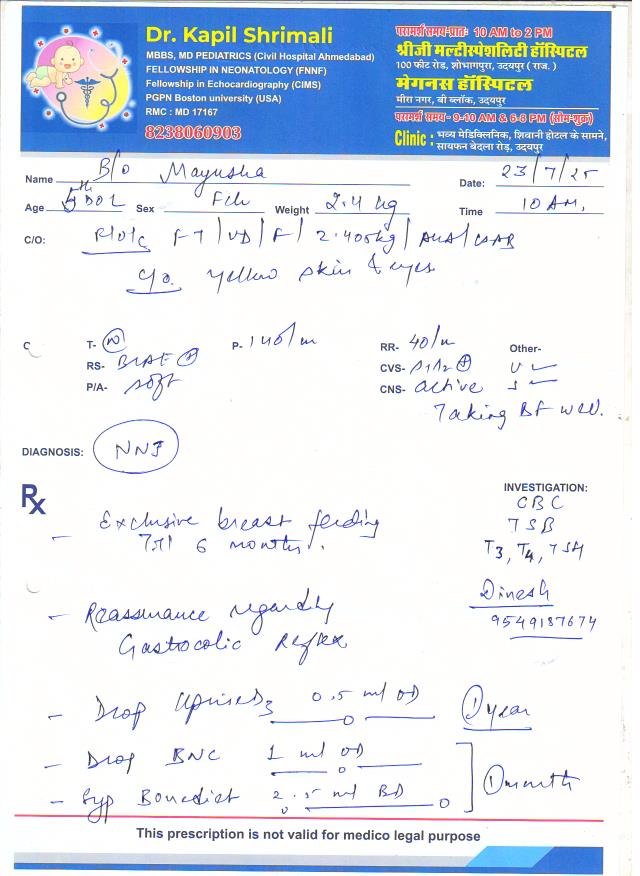 Dr. Kapil Shrimali
MBBS, MD PEDIATRICS (Civil Hospital Ahmedabad)
FELLOWSHIP IN NEONATOLOGY (FNNF)
Fellowship in Echocardiography (CIMS)
PGPN Boston university (USA)
RMC : MD 17167
8238060903
परामर्श समय-प्रातः 10 AM to 2 PM
श्रीजी मल्टीस्पेशलिटी हॉस्पिटल
100 फीट रोड, शोभागपुरा, उदयपुर ( राज. )
मेगनस हॉस्पिटल
मीरा नगर, बी ब्लॉक, उदयपुर
परामर्श समय - 9-10 AM & 6-8 PM (सोम-शुक्र)
Clinic : भव्य मेडिक्लिनिक, शिवानी होटल के सामने,
सायफन बेदला रोड़, उदयपुर
Name B/o Mayusha Date: 23/7/25
Age 5th DOL Sex Fch Weight 2.4 kg Time 10 AM,
C/O: R/O/C FT/VD/F/2.405kg/AGA/CIAB
C/o. yellow skin & eyes
C T- (N) P- 140/m RR- 40/m Other-
RS- BLAE + CVS- S1S2 + U ✓
P/A- soft CNS- active S ✓
Taking BF well.
DIAGNOSIS: NNJ
Rx INVESTIGATION:
CBC
TSB
T3, T4, TSH
- Exclusive breast feeding
Till 6 months.
Dinesh
9549187674
- Reassurance regarding
Gastrocolic Reflex
- Drop UpriseD3 0.5 ml OD 1 year
- Drop BNC 1 ml OD
- Syp Bonediet 2.5 ml BD 1 month
This prescription is not valid for medico legal purpose